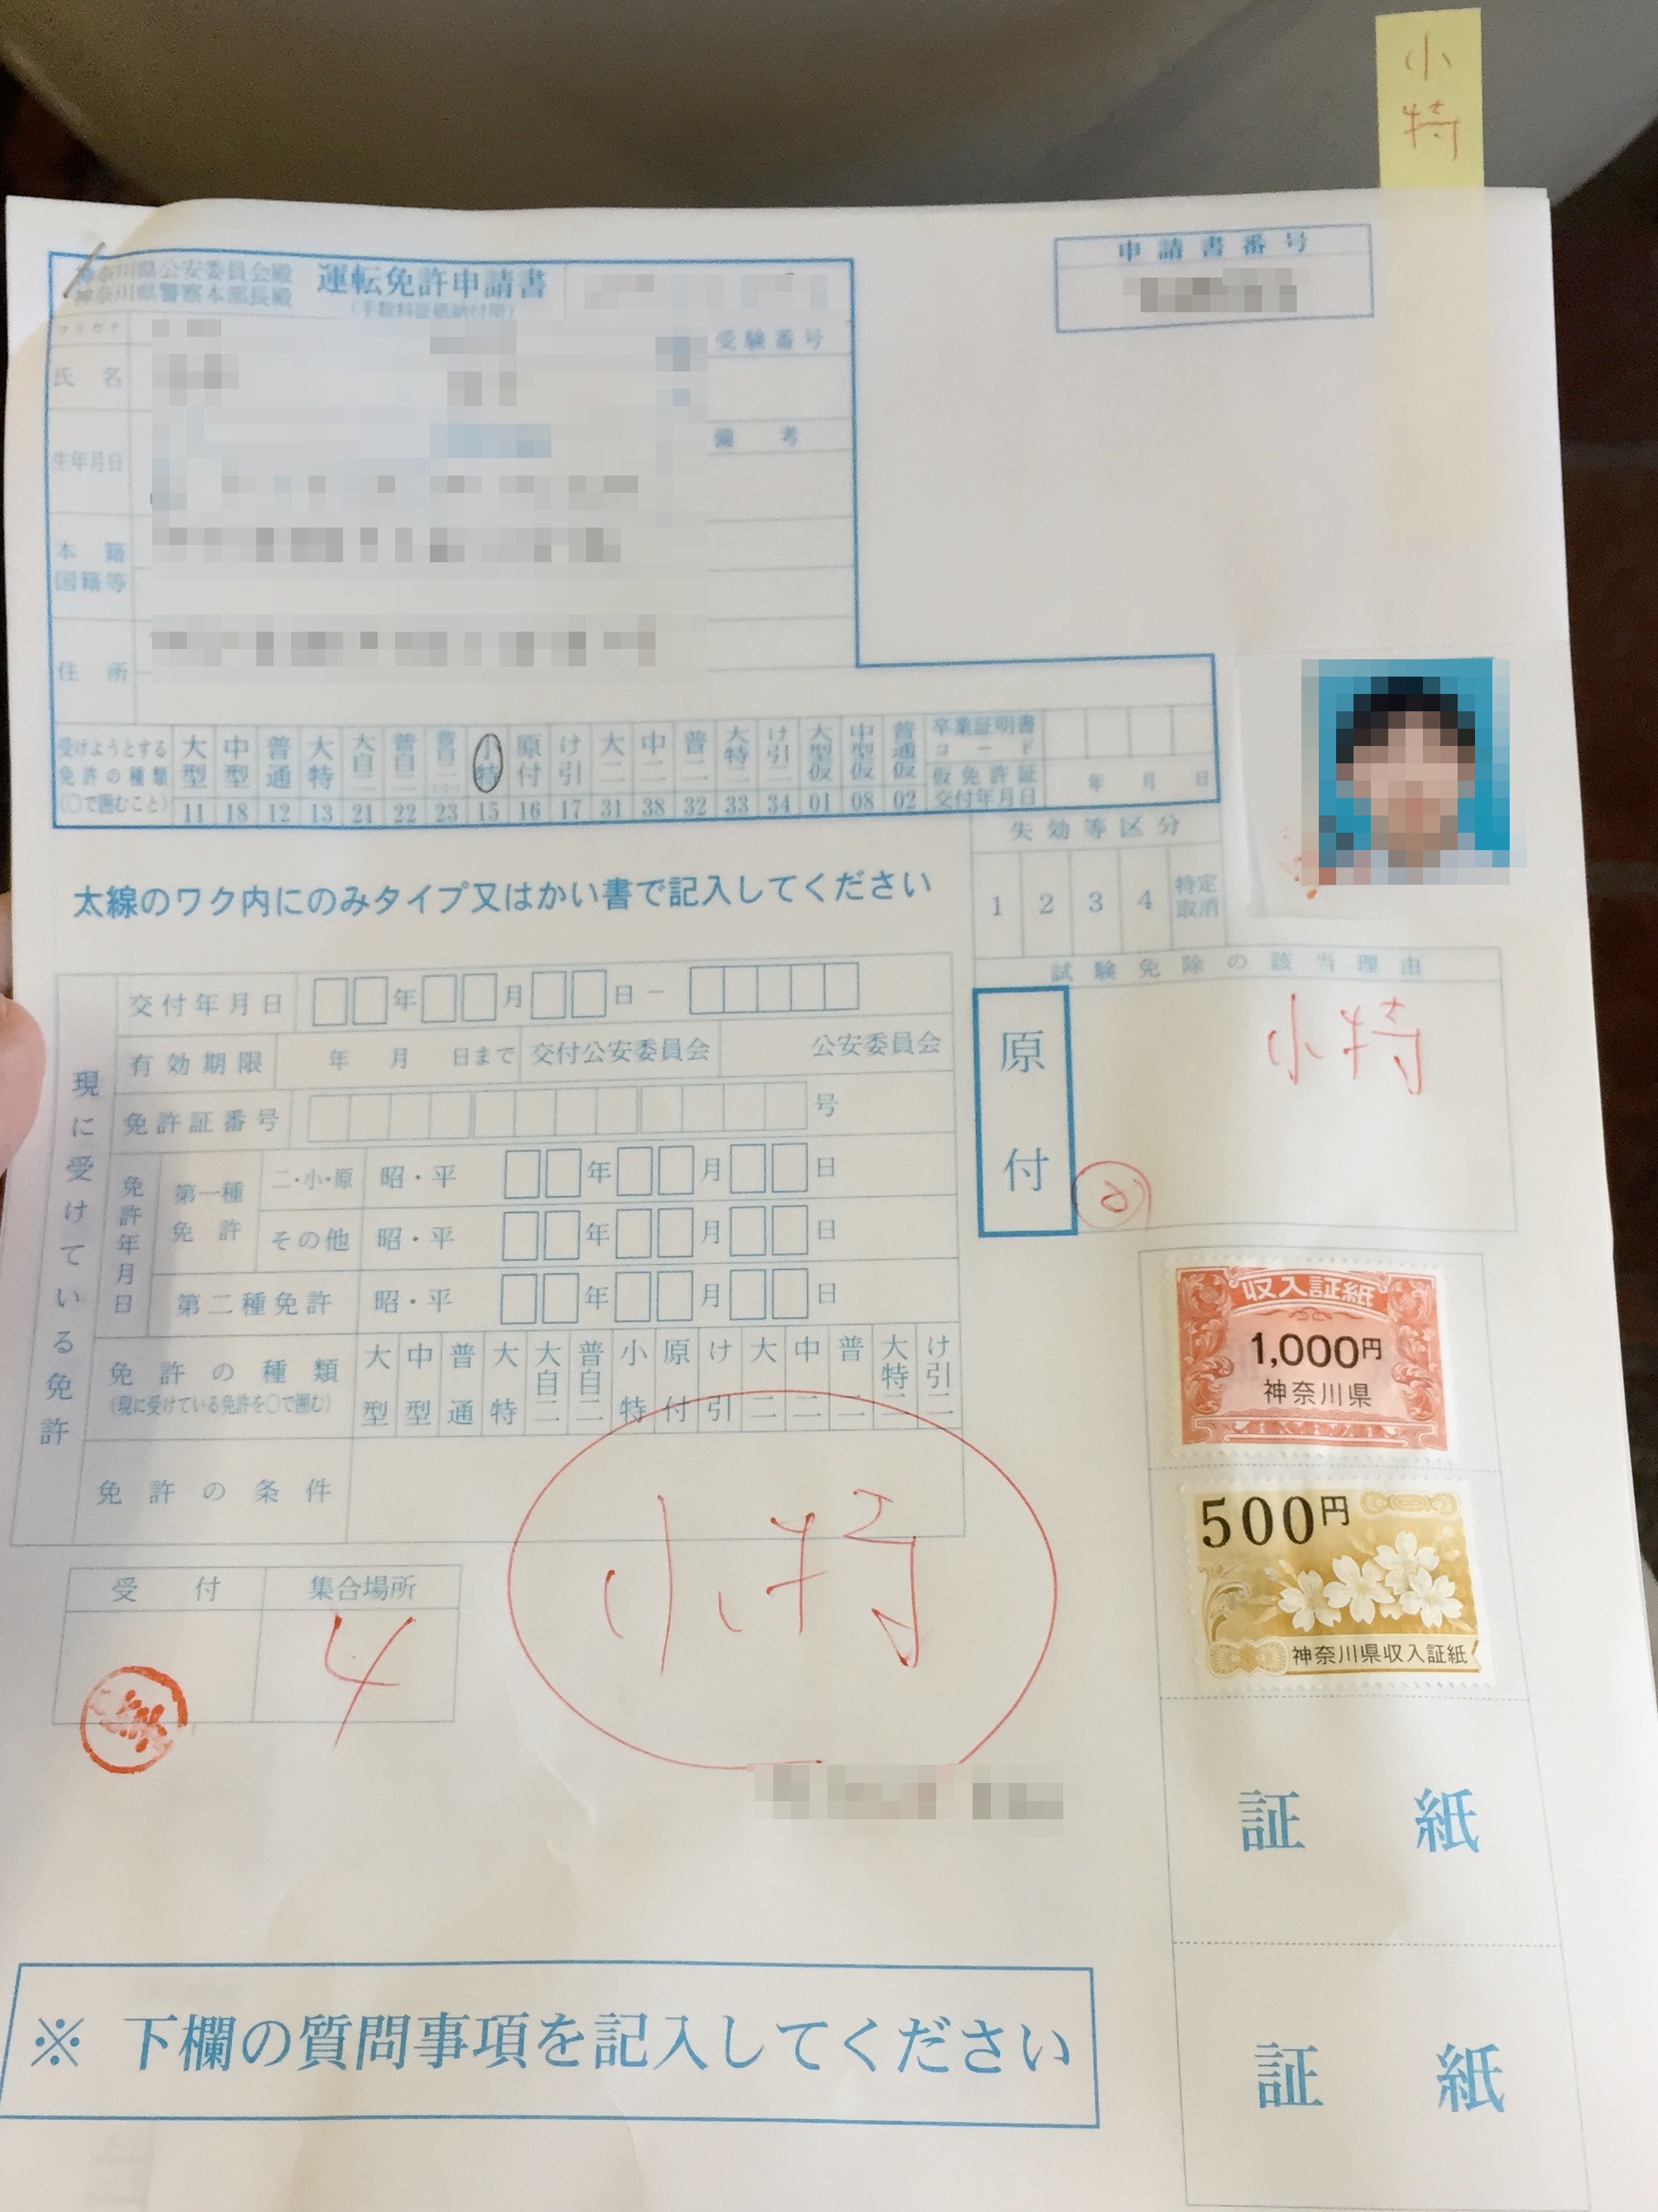 小特
申請書番号
神奈川県公安委員会殿
神奈川県警察本部長殿
運転免許申請書
(手数料証紙納付用)
フリガナ
受験番号
氏名
備考
生年月日
本籍
国籍等
住所
受けようとする
免許の種類
(○で囲むこと)
大型 中型 普通 大特 大自二 普自二 普自二(小) 小特 原付 け引 大二 中二 普二 大特二 け引二 大型仮 中型仮 普通仮
11 18 12 13 21 22 23 15 16 17 31 38 32 33 34 01 08 02
卒業証明書
コード
仮免許証
交付年月日
年 月 日
失効等区分
1 2 3 4 特定取消
太線のワク内にのみタイプ又はかい書で記入してください
試験免除の該当理由
小特
原付
現に受けている免許
交付年月日 年 月 日 −
有効期限 年 月 日まで 交付公安委員会 公安委員会
免許証番号 号
免許年月日
第一種免許
二・小・原 昭・平 年 月 日
その他 昭・平 年 月 日
第二種免許 昭・平 年 月 日
免許の種類
(現に受けている免許を○で囲む)
大型 中型 普通 大特 大自二 普自二 小特 原付 け引 大二 中二 普二 大特二 け引二
免許の条件
収入証紙
1,000円
神奈川県
500円
神奈川県収入証紙
小特
受付 集合場所
4
証紙
証紙
※ 下欄の質問事項を記入してください